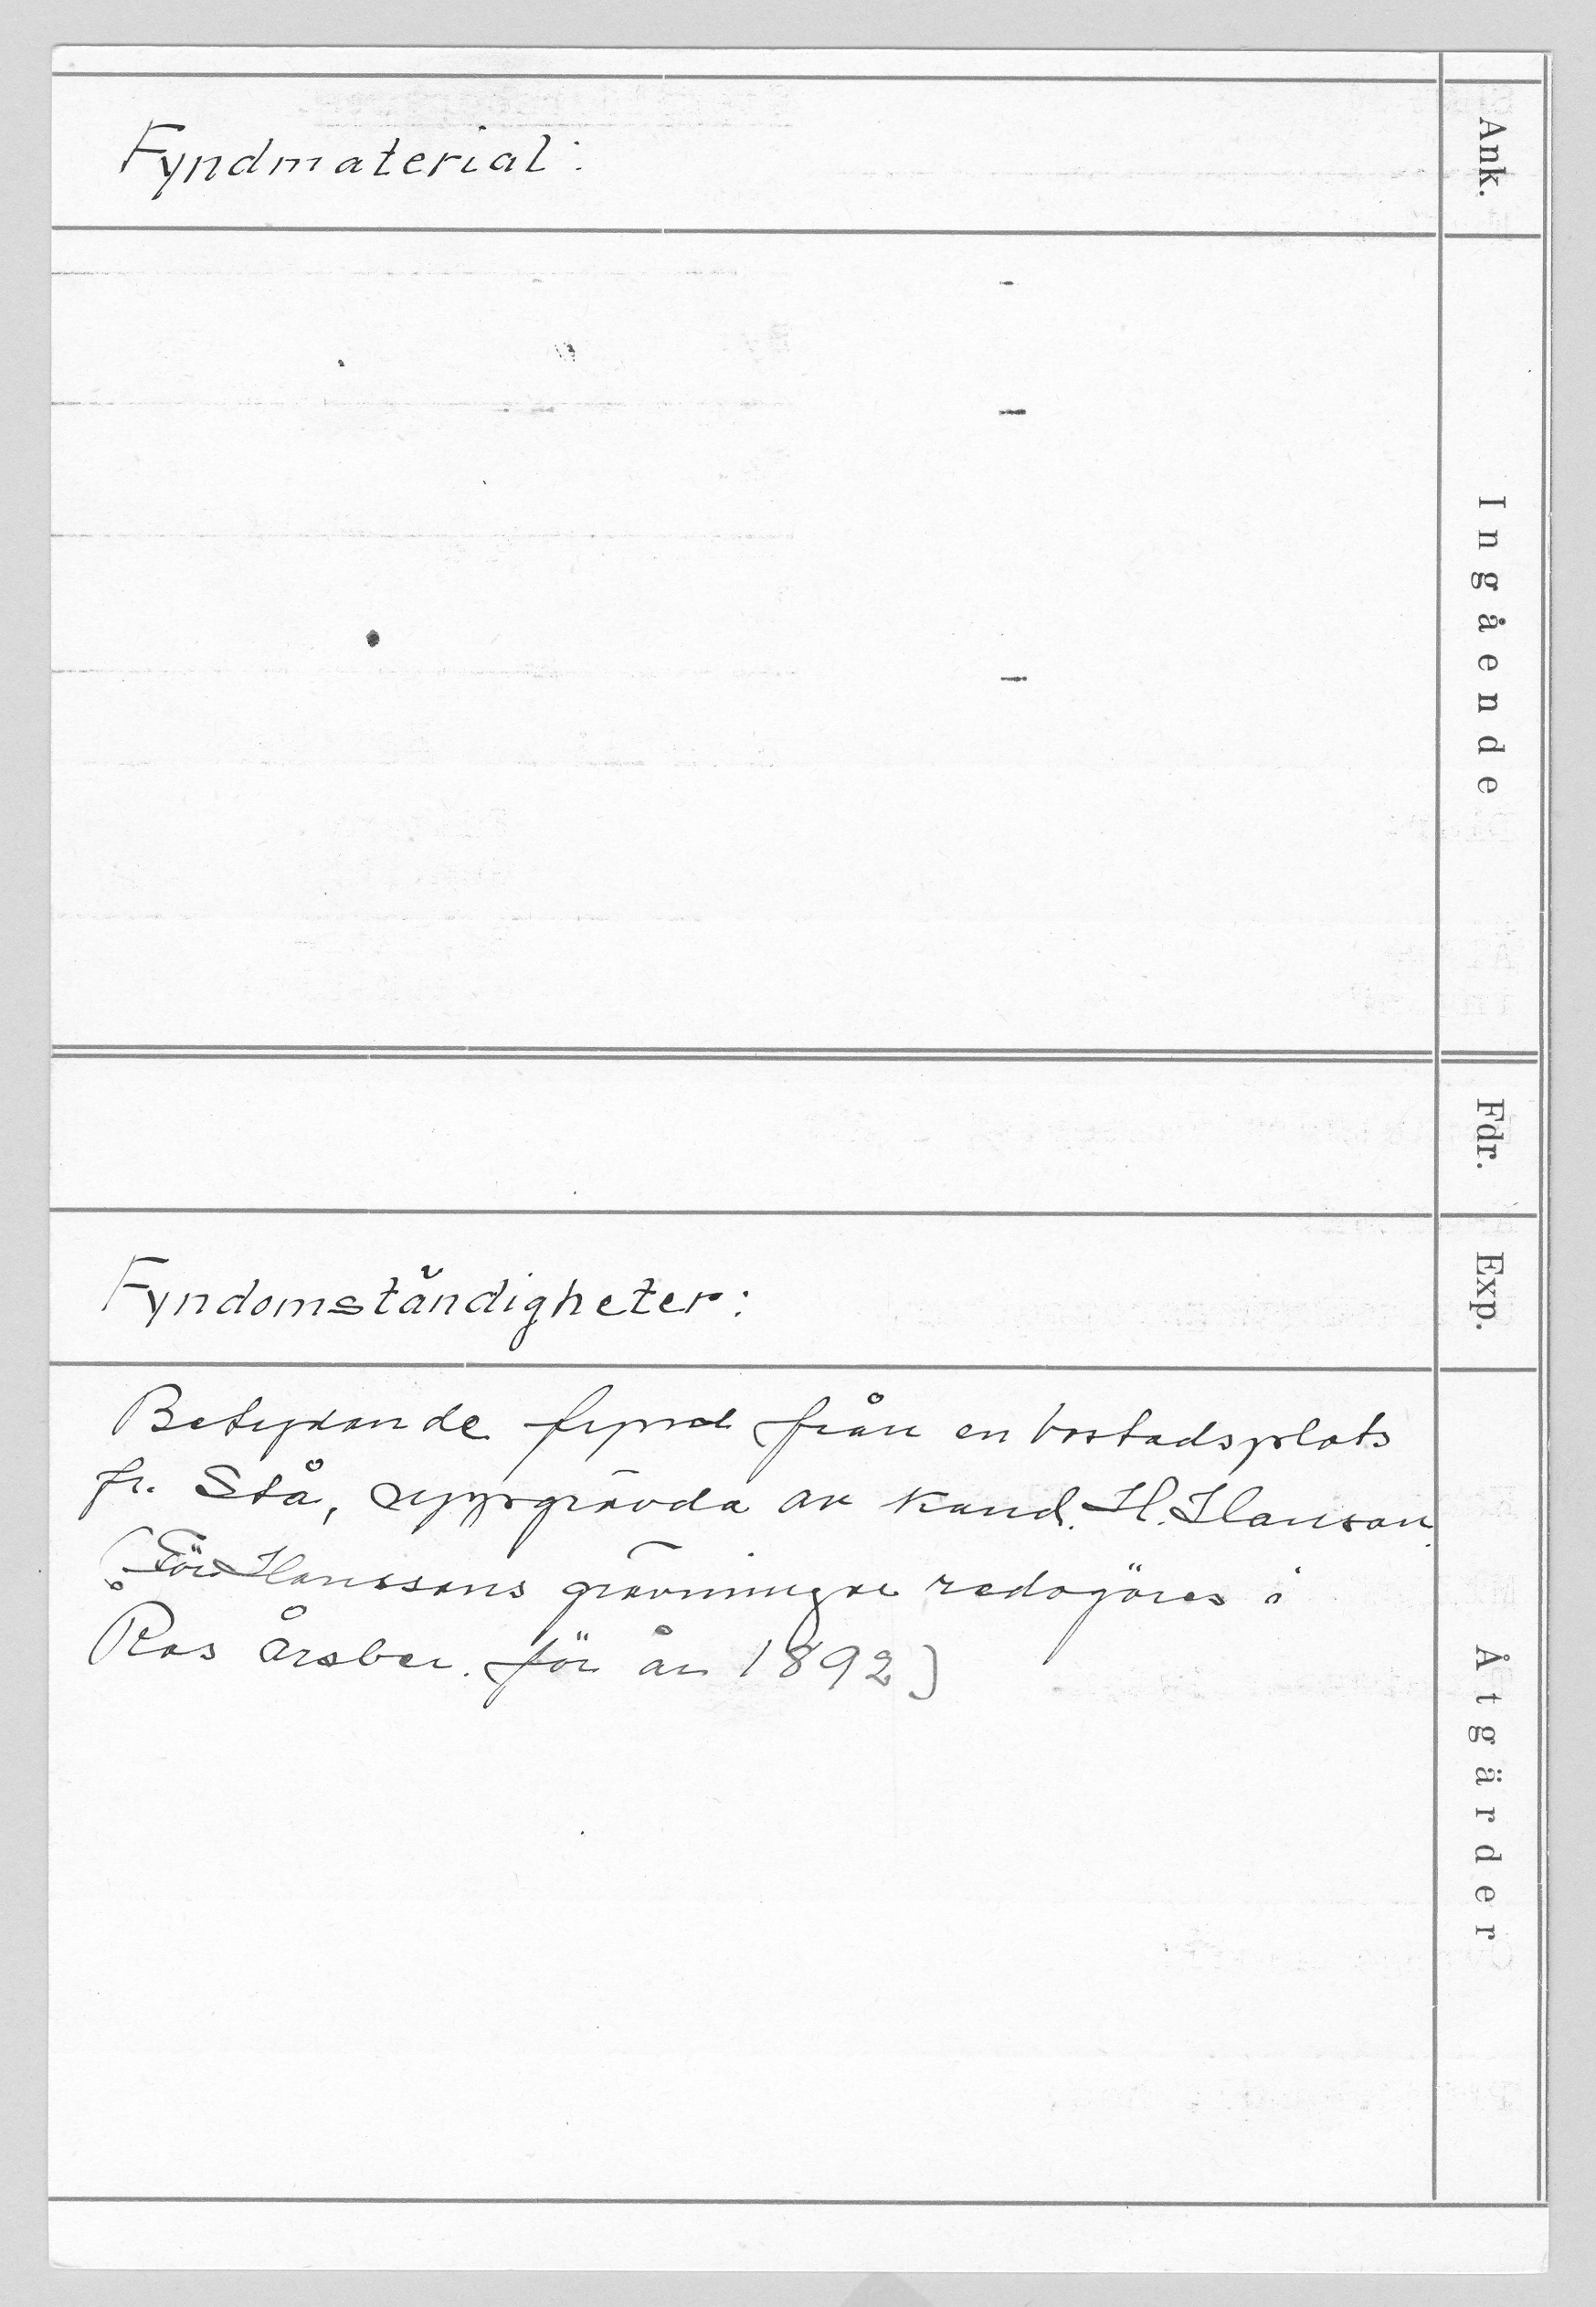 Fyndmaterial:
Ank.
Ingående
Fdr.
Exp.
Fyndomständigheter:
Betydande fynd från en bostadsplats
fr. Stå, uppgrävda av kand. H. Hansson.
(För Hanssons grävningar redogöres i
Ros årsber. för år 1892)
Åtgärder